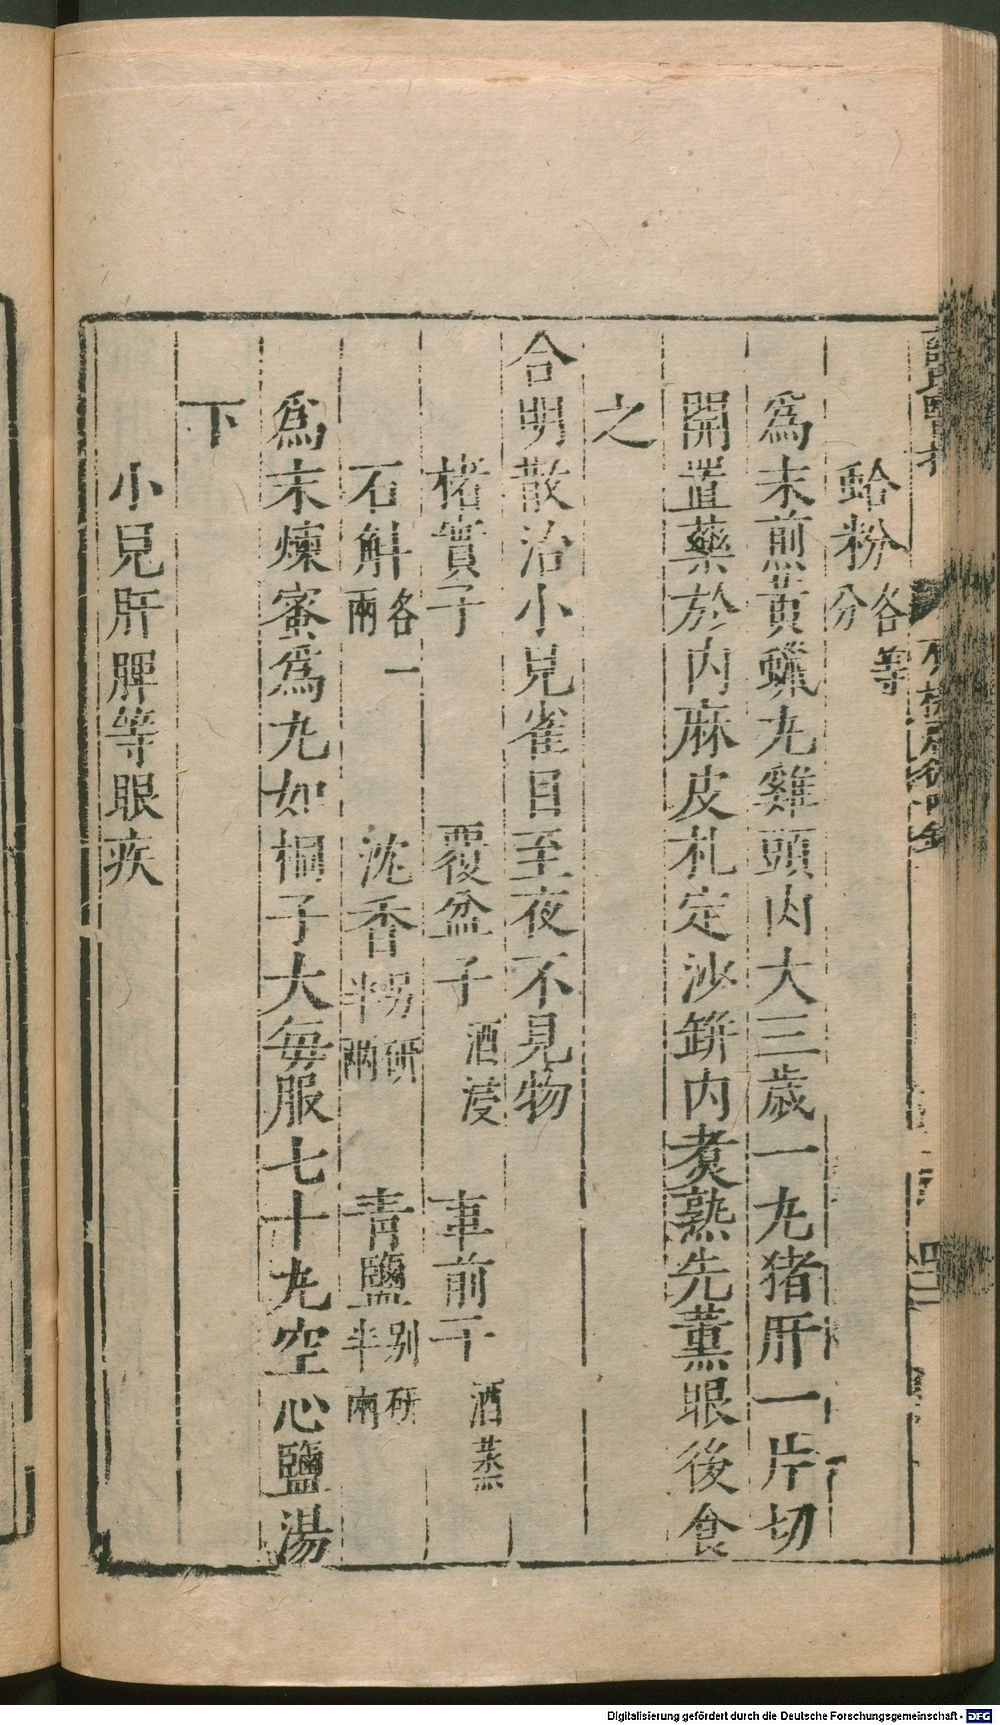 蛤粉各等分
為末煎黃蠟丸雞頭肉大三歲一丸猪肝一片切
開置藥於內麻皮札定沙鉼內煮熟先薰眼後食
之
合明散治小兒雀目至夜不見物
楮實子 覆盆子酒浸 車前子酒蒸
石斛各一兩 沈香另研半兩 青鹽别研半兩
為末煉蜜為丸如桐子大每服七十丸空心鹽湯
下
小兒肝脾等眼疾
Digitalisierung gefördert durch die Deutsche Forschungsgemeinschaft - DFG